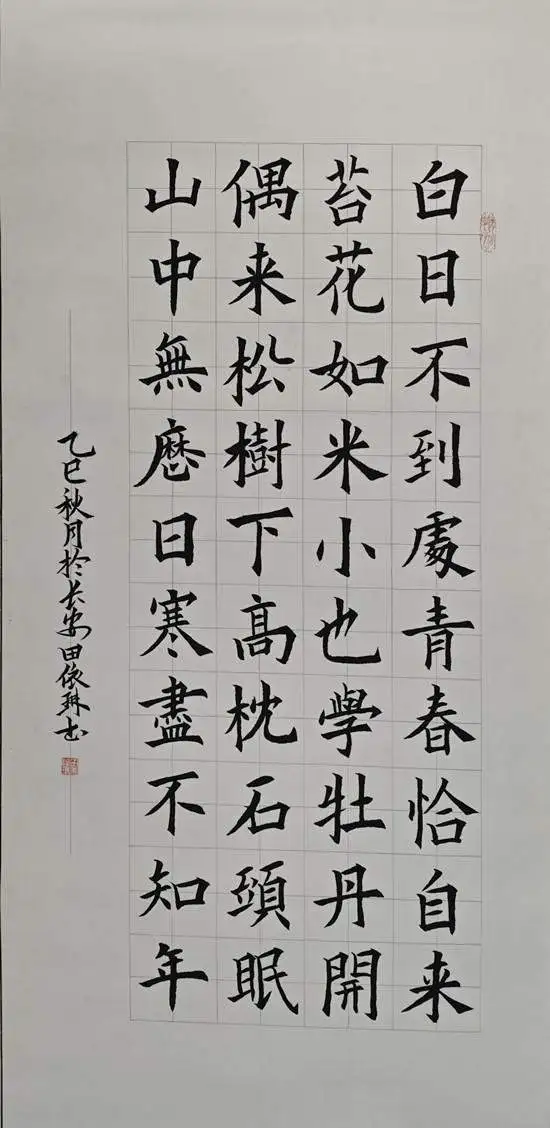 白日不到處青春恰自来
苔花如米小也學牡丹開
偶来松樹下高枕石頭眠
山中無曆日寒盡不知年
乙巳秋月於长安田依琳书